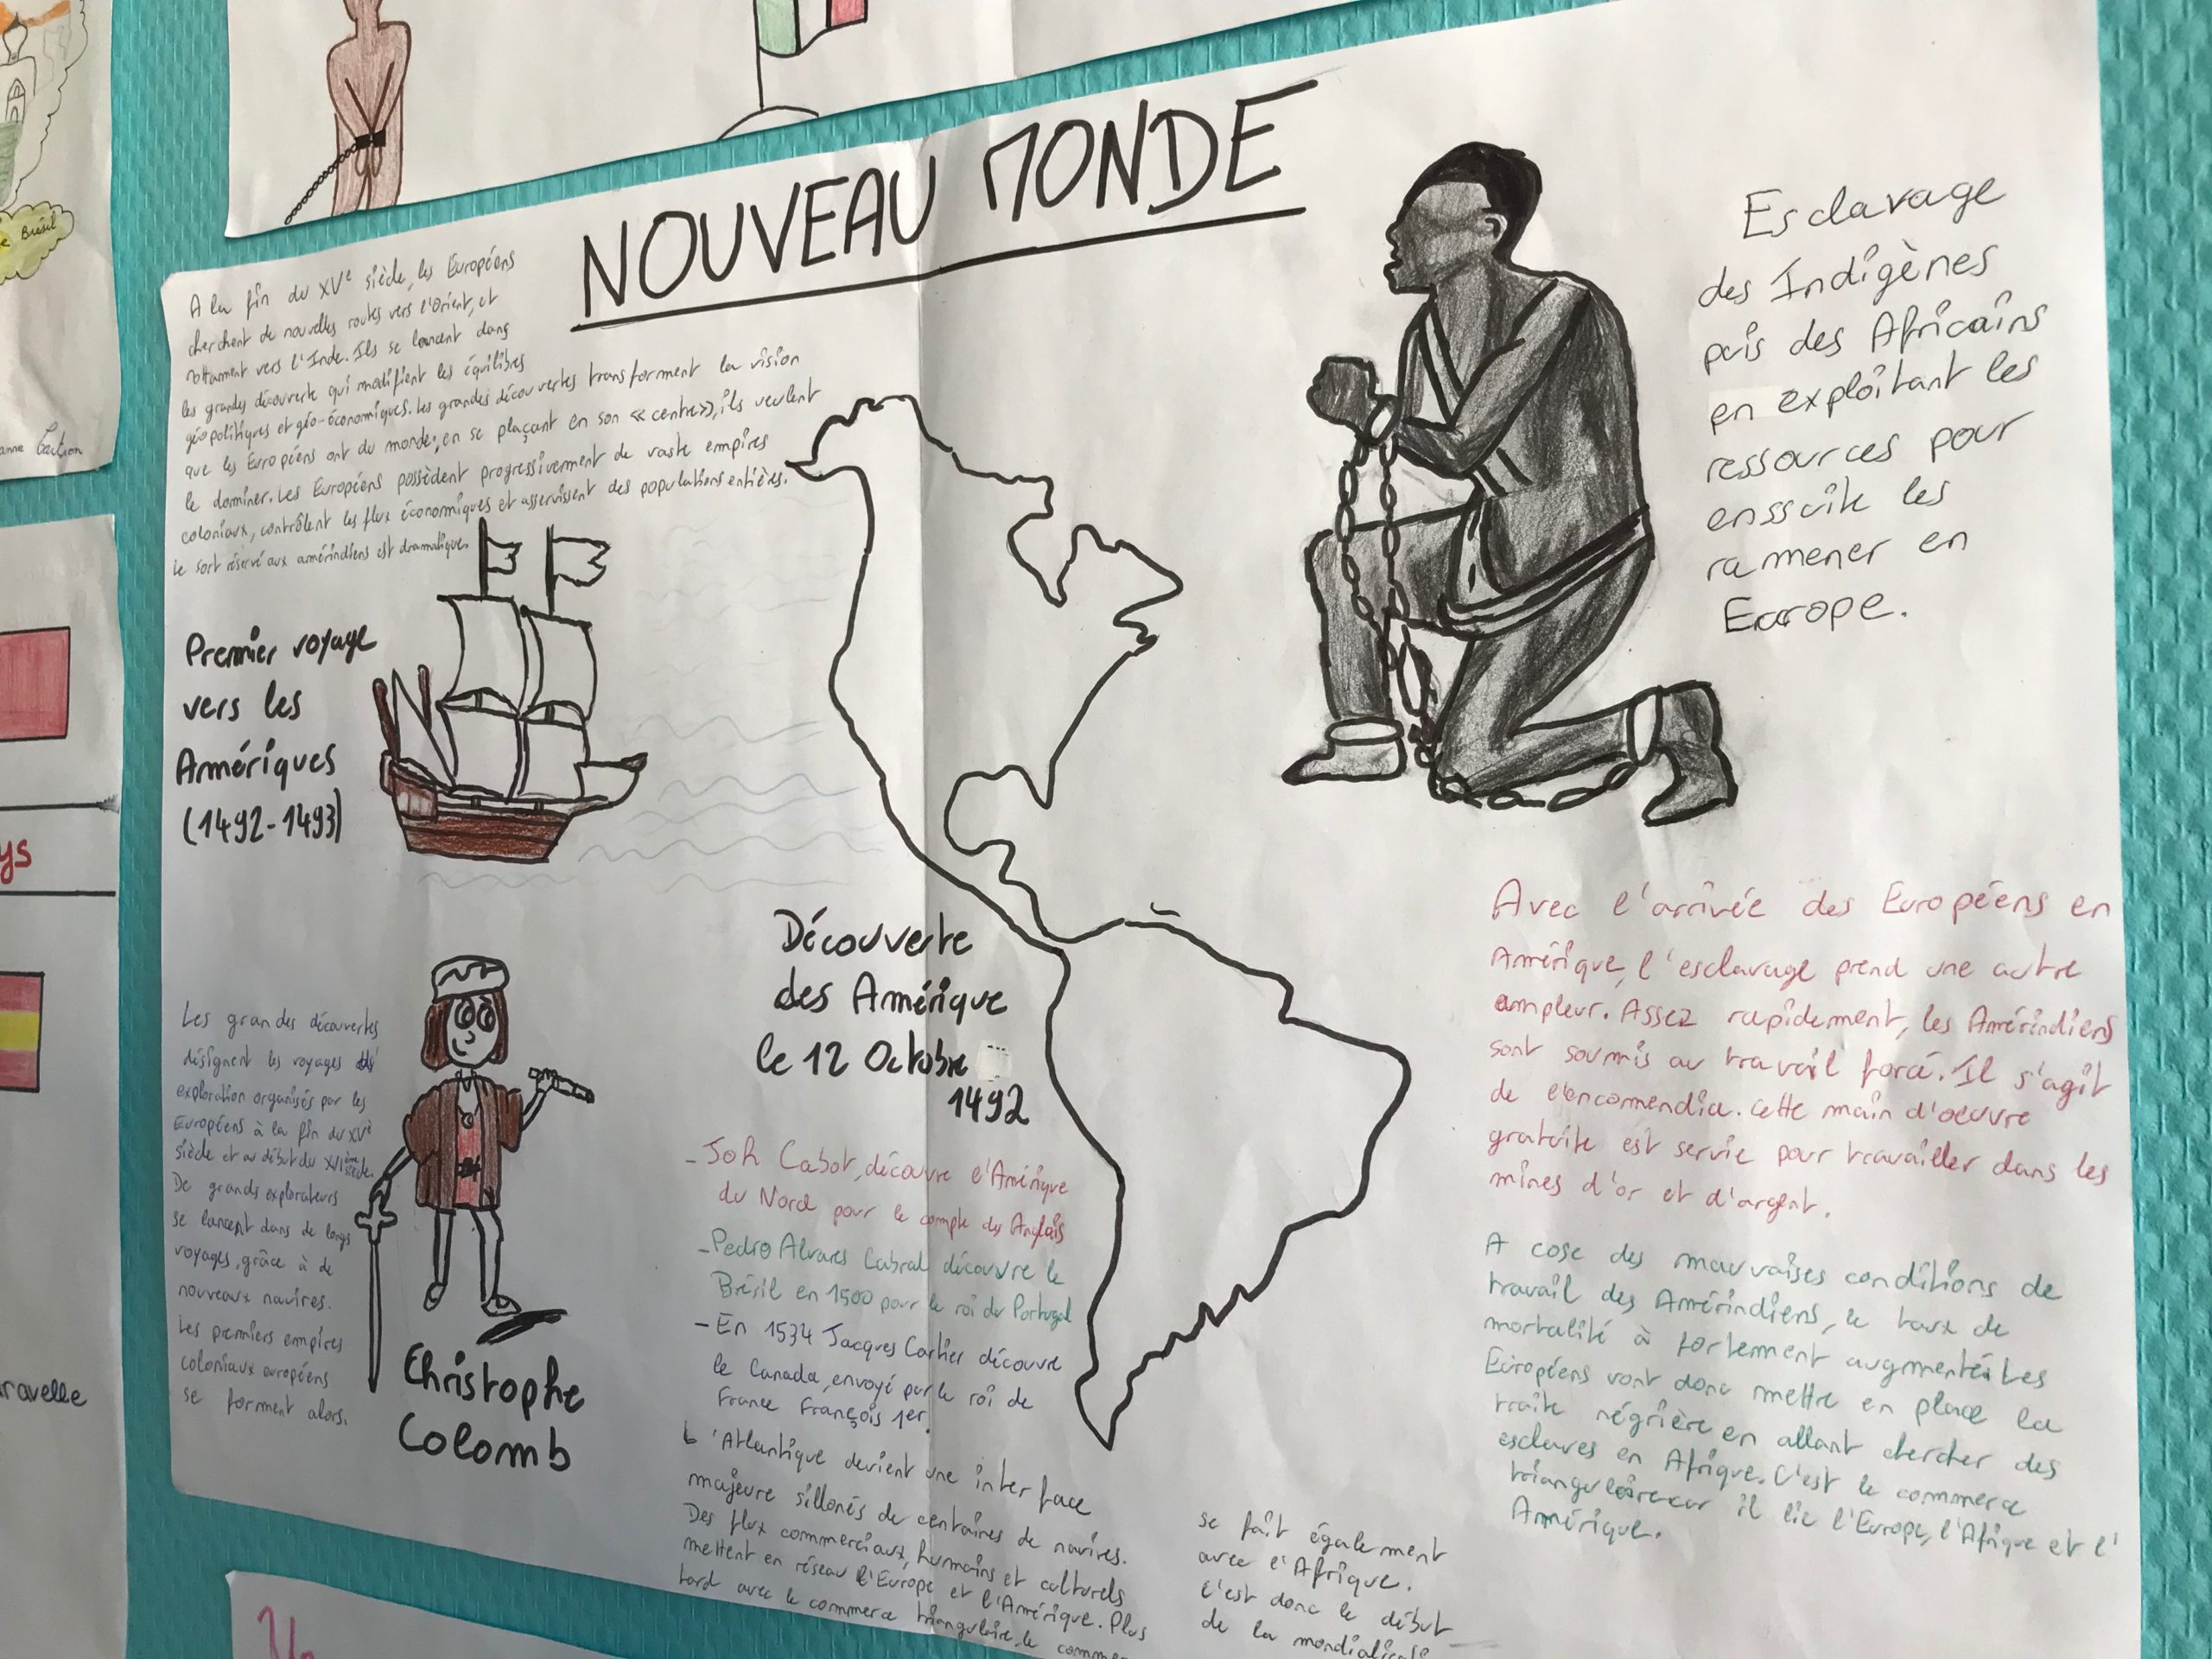 NOUVEAU MONDE
A la fin du XVe siècle, les Européens
cherchent de nouvelles routes vers l'Orient, et
nottament vers l'Inde. Ils se lancent dans
les grandes découverte qui modifient les équilibres
géopolitiques et géo-économiques. Les grandes découvertes transforment la vision
que les Européens ont du monde; en se plaçant en son «centre», ils veulent
le dominer. Les Européens possèdent progressivement de vaste empires
coloniaux, contrôlent les flux économiques et asservissent des populations entières.
Le sort réservé aux amérindiens est dramatique.
Premier voyage
vers les
Amériques
(1492-1493)
Les grandes découvertes
désignent les voyages
exploration organisés par les
Européens à la fin du XVe
siècle et au début du XVIème siècle.
De grands explorateurs
se lancent dans de longs
voyages, grâce à de
nouveaux navires.
Les premiers empires
coloniaux européens
se forment alors.
Christophe
Colomb
Découverte
des Amérique
le 12 Octobre
1492
- Joh Cabot, découvre l'Amérique
du Nord pour le compte des Anglais
- Pedro Alvares Cabral découvre le
Brésil en 1500 pour le roi du Portugal
- En 1534 Jacques Cartier découvre
le Canada, envoyé par le roi de
France François 1er.
L'Atlantique devient une interface
majeure sillonés de centaines de navires.
Des flux commerciaux, humains et culturels
mettent en réseau l'Europe et l'Amérique. Plus
tard avec le commerce triangulaire, le comme
se fait également
avec l'Afrique.
C'est donc le début
de la
Esclavage
des Indigènes
puis des Africains
en exploitant les
ressources pour
enssuite les
ramener en
Europe.
Avec l'arrivée des Européens en
Amérique, l'esclavage prend une autre
ampleur. Assez rapidement, les Amérindiens
sont soumis au travail forcé. Il s'agit
de l'encomendia. Cette main d'oeuvre
gratuite est servie pour travailler dans les
mines d'or et d'argent.
A cose des mauvaises conditions de
travail des Amérindiens, le taux de
mortalité à fortement augmenté. Les
Européens vont donc mettre en place la
traite négrière en allant chercher des
esclaves en Afrique. C'est le commerce
triangulaire car il lie l'Europe, l'Afrique et l'
Amérique.
Brésil
anne
ys
ravelle